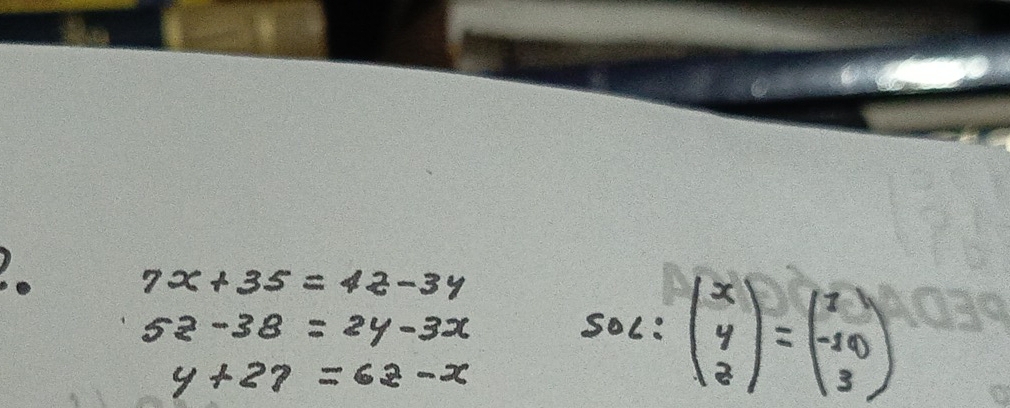 2.
7x + 35 = 4z - 3y
5z - 38 = 2y - 3x
y + 27 = 6z - x
SOL: (x y z) = (1 -10 3)